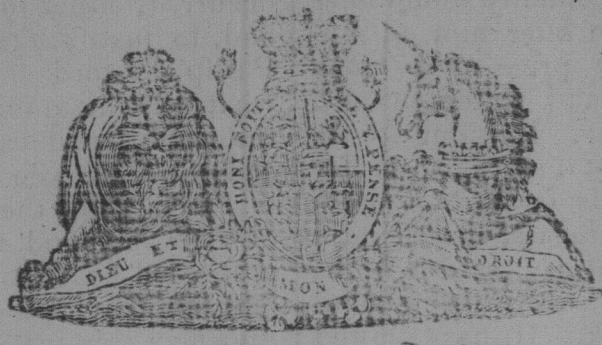 HONI SOIT
Y PENSE
DIEU ET
MON
DROIT